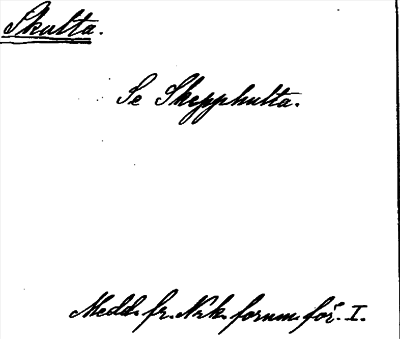 Skulta.
Se Skepphulta.
Medd. fr. Nrk. fornm. för. I.